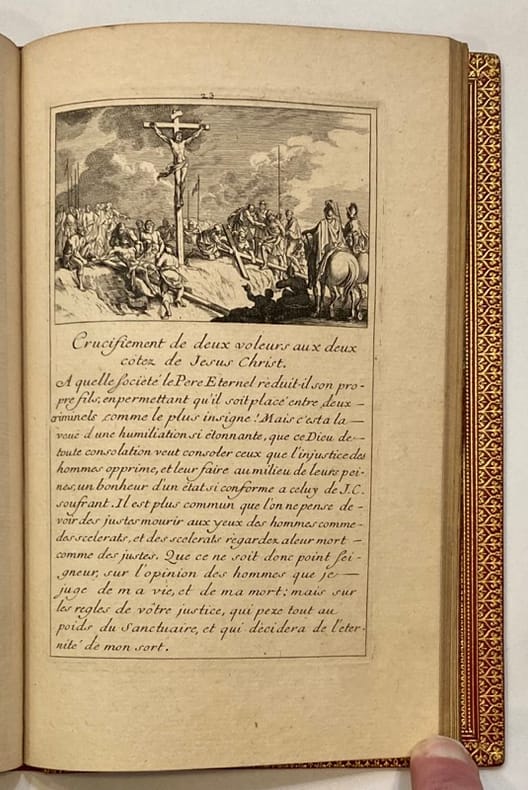 23
Crucifiement de deux voleurs aux deux
côtez de Jesus Christ.
A quelle Société le Pere Eternel réduit-il son pro-
pre fils, en permettant qu'il soit placé entre deux —
criminels comme le plus insigne! Mais c'est a la —
veuë d'une humiliation si étonnante, que ce Dieu de —
toute consolation veut consoler ceux que l'injustice des
hommes opprime, et leur faire au milieu de leurs pei-
nes, un bonheur d'un état si conforme a celuy de J.C.
soufrant. Il est plus commun que l'on ne pense de —
voir des justes mourir aux yeux des hommes comme —
des scelerats, et des scelerats regardez a leur mort —
comme des justes. Que ce ne soit donc point Sei-
gneur, sur l'opinion des hommes que je —
juge de ma vie, et de ma mort; mais sur
les regles de vôtre justice, qui peze tout au
poids du Sanctuaire, et qui décidera de l'éter-
nité de mon sort.